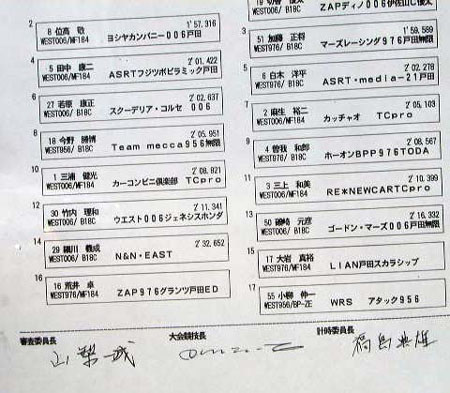 2
8 位高 敬 1'57.316
WEST006/MF184 ヨシヤカンパニー006戸田
4
5 田中 康二 2'01.422
WEST006/MF184 ASRTフジツボピラミック戸田
6
27 若原 康正 2'02.637
WEST006/ B18C スクーデリア・コルセ 006
8
18 今野 勝博 2'05.951
WEST956/ B18C Team mecca956無限
10
1 三浦 健光 2'08.821
WEST976/MF184 カーコンビニ倶楽部 TCpro
12
30 竹内 理和 2'11.341
WEST006/ B18C ウエスト006ジェネシスホンダ
14
29 細川 義成 2'32.652
WEST006/ B18C N&N・EAST
16
16 荒井 卓
WEST976/MF184 ZAP976グランツ戸田ED
WEST006/ B18C
3
51 加藤 正将 1'59.589
WEST976/MF184 マーズレーシング976戸田無限
5
6 白木 洋平 2'02.278
WEST006/ B18C ASRT・media-21戸田
7
2 麻生 裕二 2'05.103
WEST006/ B18C カッチャオ TCpro
9
4 曽我 和郎 2'08.567
WEST976/ B18C ホーオンBPP976TODA
11
3 三上 和美 2'10.399
WEST976/MF184 RE*NEWCARTCpro
13
50 元彦 2'16.332
WEST006/ B18C ゴードン・マーズ006戸田無限
15
17 大岩 真裕
WEST976/MF184 LIAN戸田スカラシップ
17
55 小柳 伸一
WEST956/BP-ZE WRS アタック956
審査委員長 大会競技長 計時委員長
福島 典雄